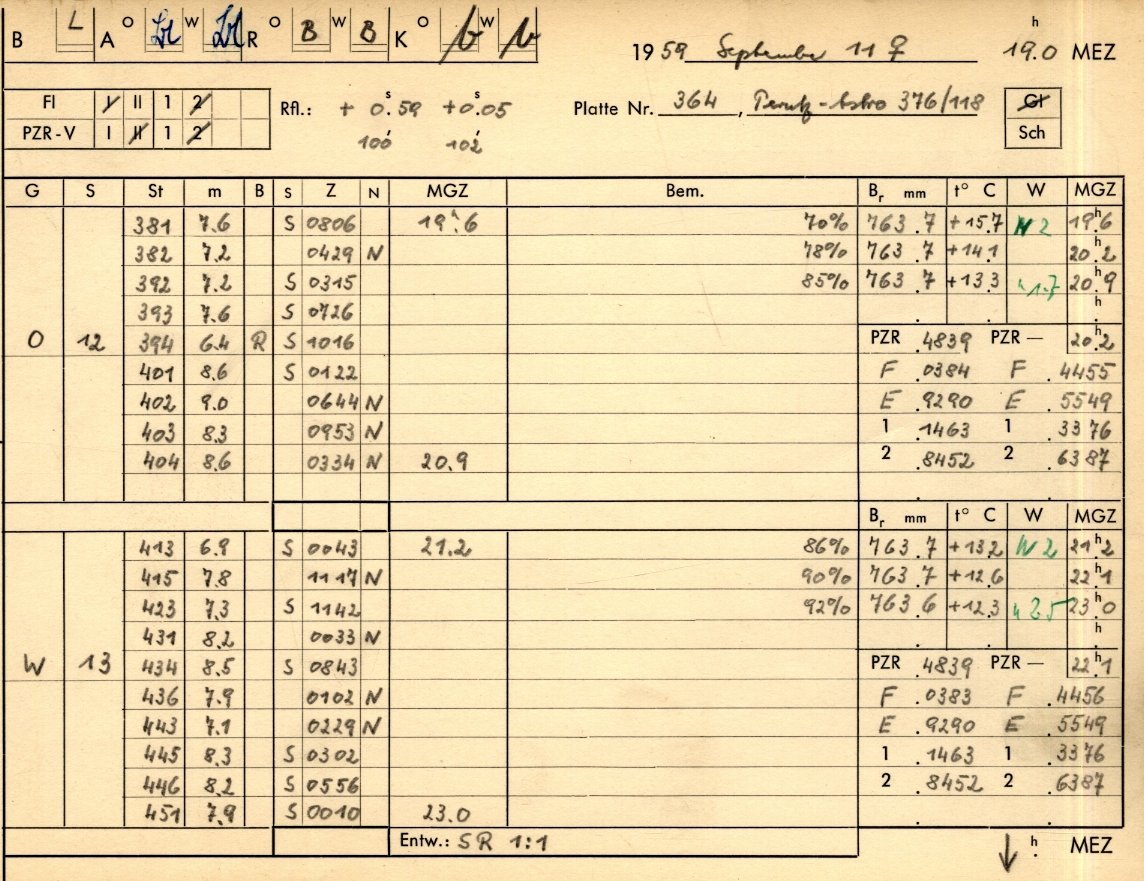 B L A O W R O B W B K O b W b
1959 September 11 ♀ 19.0 h MEZ
Fl I II 1 2
Rfl.: + 0.59 s +0.05 s
Platte Nr. 364, Perutz-Astro 376/118
Gl
PZR-V I II 1 2
100 102
Sch
G S St m B S Z N MGZ Bem. Br mm t° C W MGZ
381 7.6 S 0806 19h.6 70% 763.7 +15.7 N 2 19h.6
382 7.2 0429 N 78% 763.7 +14.1 20h.2
392 7.2 S 0315 85% 763.7 +13.3 " 1.7 20h.9
393 7.6 S 0726 h
O 12 394 6.4 R S 1016 PZR .4839 PZR — 20h.2
401 8.6 S 0122 F .0384 F .4455
402 9.0 0644 N E .9290 E .5549
403 8.3 0953 N 1 .1463 1 .3376
404 8.6 0334 N 20.9 2 .8452 2 .6387
Br mm t° C W MGZ
413 6.9 S 0043 21.2 86% 763.7 +13.2 N 2 21h.2
415 7.8 1117 N 90% 763.7 +12.6 22h.1
423 7.3 S 1142 92% 763.6 +12.3 " 2.5 23h.0
431 8.2 0033 N h
W 13 434 8.5 S 0843 PZR .4839 PZR — 22h.1
436 7.9 0102 N F .0383 F .4456
443 7.1 0229 N E .9290 E .5549
445 8.3 S 0302 1 .1463 1 .3376
446 8.2 S 0556 2 .8452 2 .6387
451 7.9 S 0010 23.0
Entw.: SR 1:1 ↓ h. MEZ